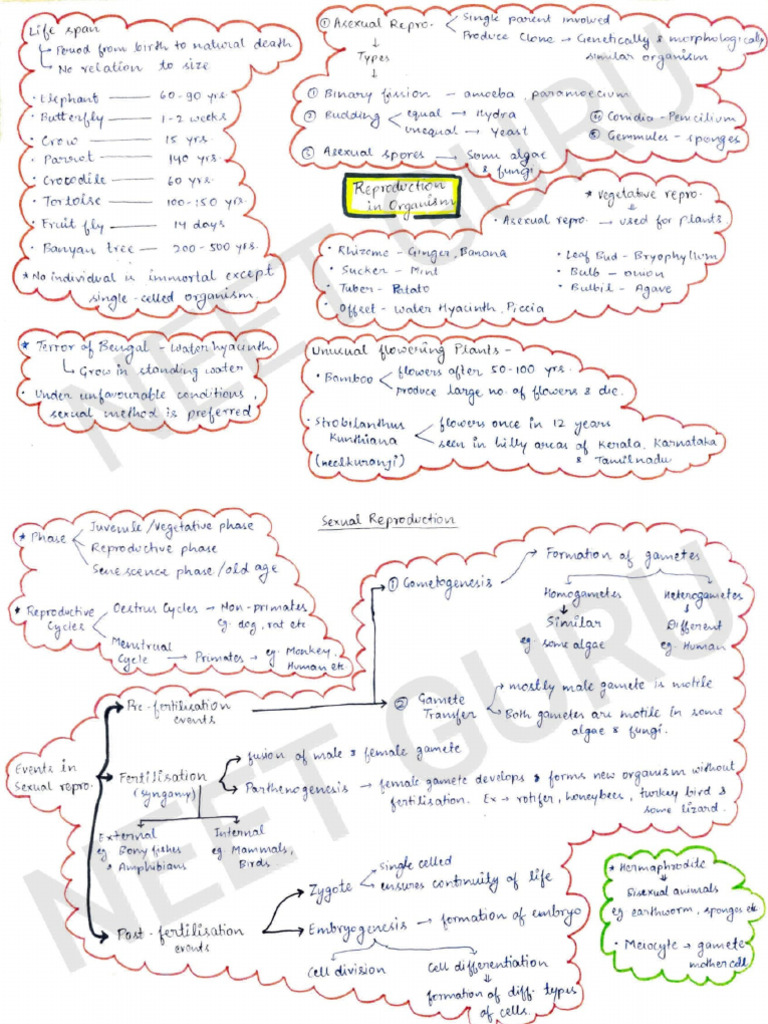 Life span
Peroid from birth to natural death
No relation to size
• Elephant — 60-90 yrs.
• Butterfly — 1-2 weeks
• Crow — 15 yrs.
• Parrot — 140 yrs.
• Crocodile — 60 yrs.
• Tortoise — 100-150 yrs.
• Fruit fly — 14 days
• Banyan tree — 200-500 yrs.
* No individual is immortal except
single-celled organism
① Asexual Repro.
Single parent involved
Produce Clone → Genetically & morphologically
similar organism
Types
① Binary fission - amoeba, paramoecium
② Budding
equal → Hydra
unequal → Yeast
③ Asexual spores → Some algae
& fungi
④ Conidia - Pencilium
⑤ Gemmules - sponges
Reproduction
in Organism
* vegetative repro.
• Asexual repro. → used for plants
• Rhizome - Ginger, Banana
• Sucker - Mint
• Tuber - Potato
• Offset - water Hyacinth, Piccia
• Leaf Bud - Bryophyllum
• Bulb - onion
• Bulbil - Agave
* Terror of Bengal - Water hyacinth
Grow in standing water
• Under unfavourable conditions,
sexual method is preferred
Unusual flowering Plants -
• Bamboo
flowers after 50-100 yrs.
produce large no. of flowers & die.
• Strobilanthus
Kunthiana
(neelkuranji)
flowers once in 12 years
seen in hilly areas of Kerala, Karnataka
& Tamilnadu
Sexual Reproduction
* Phase
Juvenile/vegetative phase
Reproductive phase
Senescence phase/old age
* Reproductive
Cycles
Oestrus Cycles → Non-primates
Eg. dog, rat etc
Menstrual
Cycle → Primates → eg. Monkey,
Human etc.
① Gametogenesis
Formation of gametes
Homogametes
Similar
eg. some algae
Heterogametes
Different
eg. Human
② Gamete
Transfer
mostly male gamete is motile
Both gametes are motile in some
algae & fungi.
Events in
Sexual repro.
Pre-fertilisation
events
Fertilisation
(syngamy)
fusion of male & female gamete
Parthenogenesis → female gamete develops & forms new organism without
fertilisation. Ex → rotifer, honeybees, turkey bird &
some lizard.
External
eg Bony fishes
& Amphibians
Internal
eg. Mammals,
Birds
Post-fertilisation
events
Zygote
Single celled
ensures continuity of life
Embryogenesis → formation of embryo
Cell division
Cell differentiation
formation of diff. types
of cells.
* Hermaphrodite
Bisexual animals
eg earthworm, sponges etc.
• Meiocyte → gamete
mother cell
NEET GURU
NEET GURU